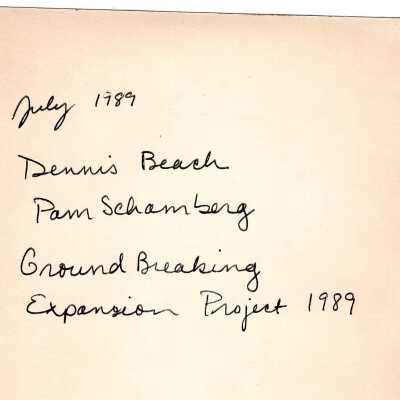 July 1989
Dennis Beach
Pam Schamberg
Ground Breaking
Expansion Project 1989